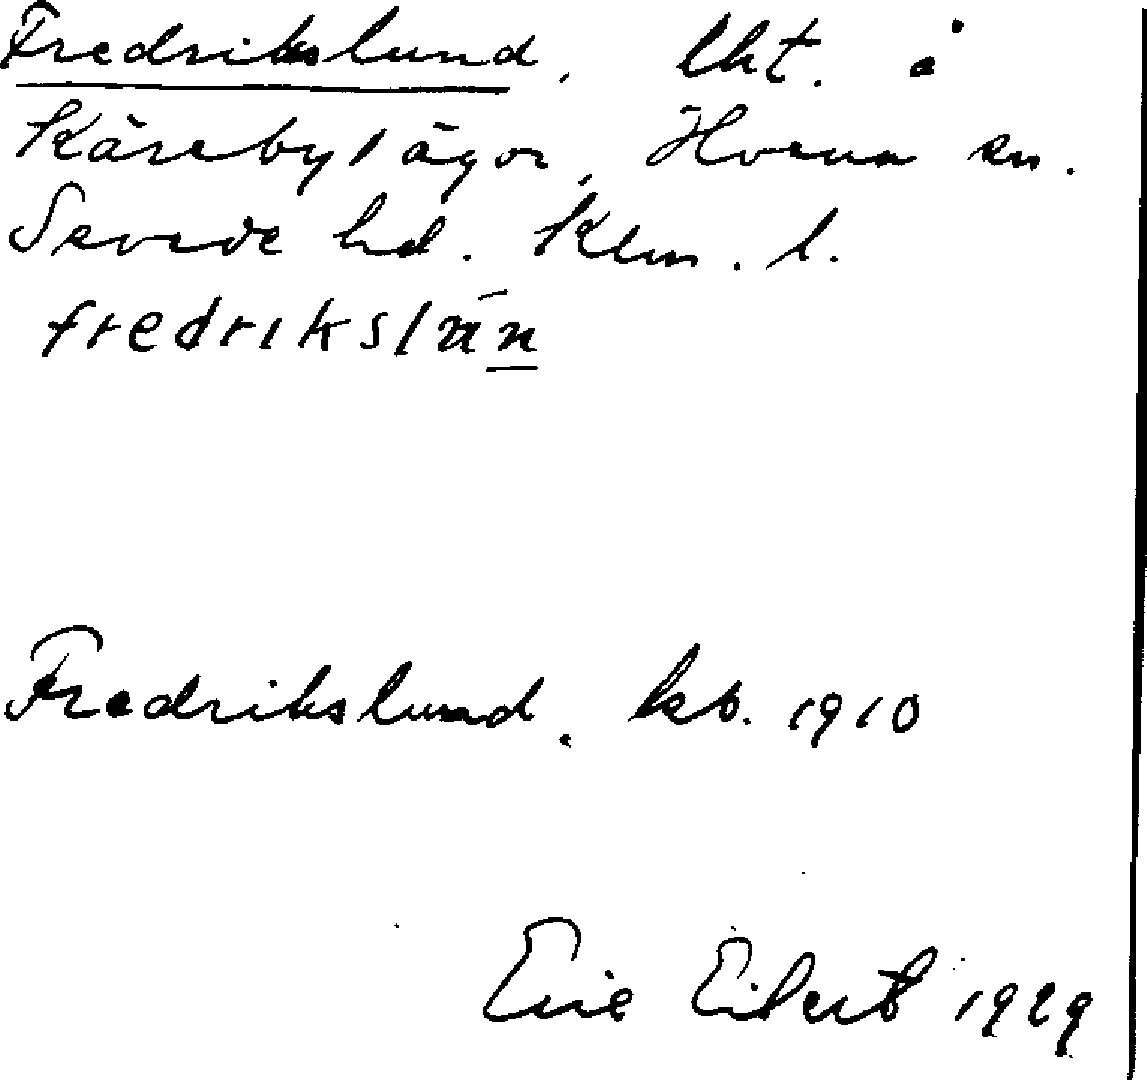 Fredrikslund, lht. å
Kärebys ägor, Hvena sn.
Sevede hd. Klm. l.
fredrikslän
Fredrikslund. kb. 1910
Eric Eilert 1929